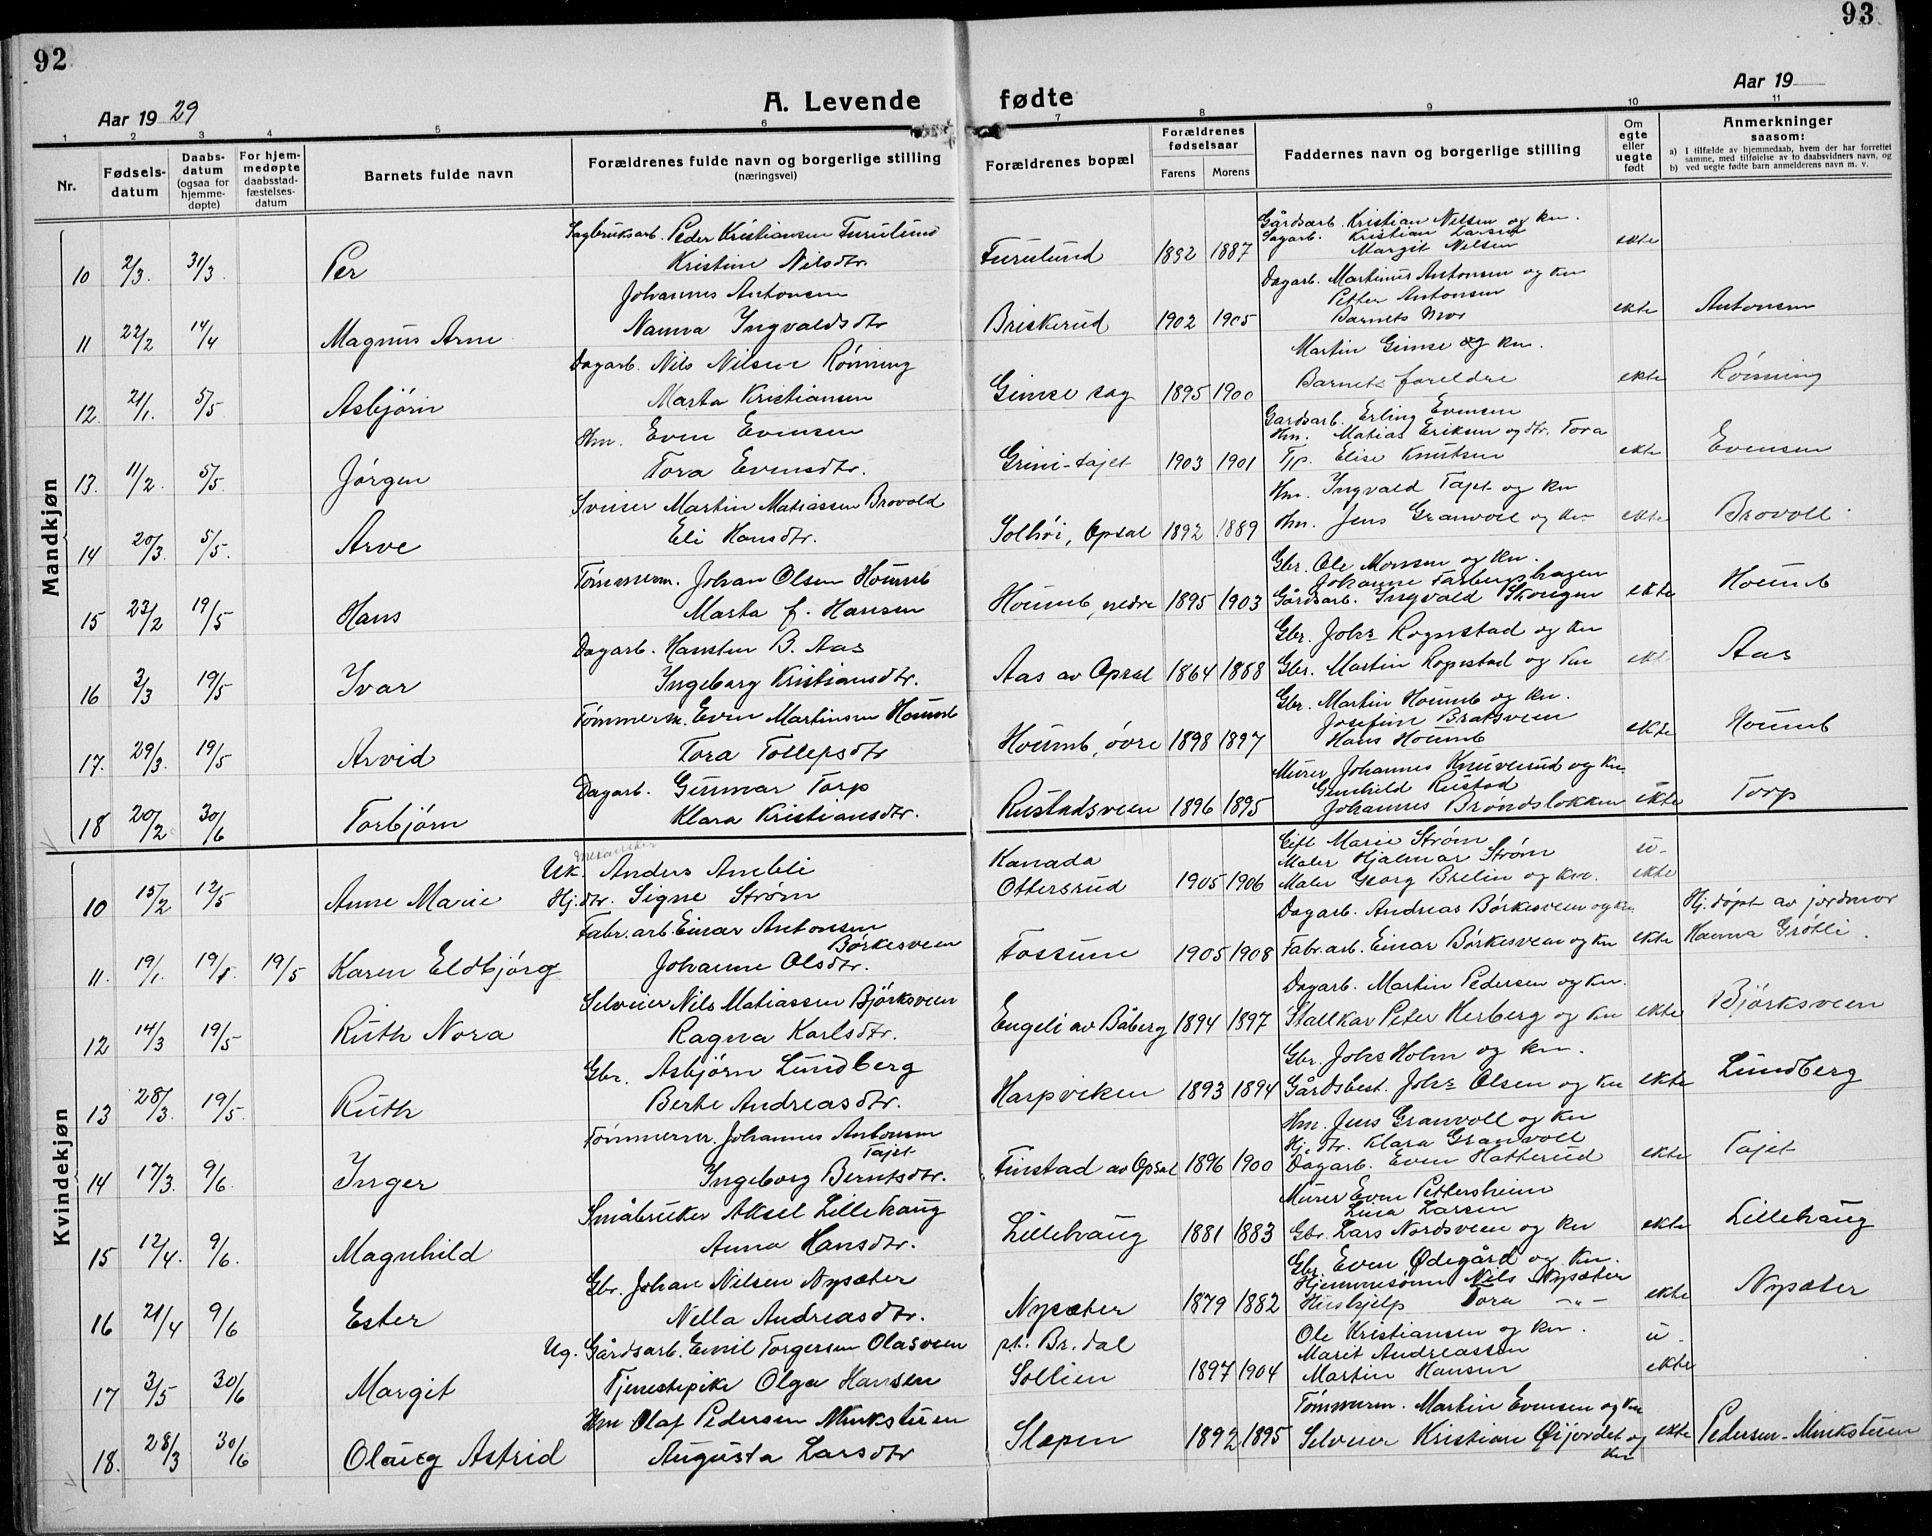 92
Aar 1929
A. Levende
1 2 3 4 5 6
Nr.
Fødsels-datum
Daabs-datum (ogsaa for hjemme-døpte)
For hjem-medøpte daabsstad-fæstelses-datum
Barnets fulde navn
Forældrenes fulde navn og borgerlige stilling (næringsvei)
Mandkjøn
Sagbruksarb. Peder Kristiansen Furulund
10 2/3. 31/3. Per Kristine Nilsdtr.
Johannes Antonsen
11 22/2 14/4 Magnus Arne Nanna Ingvaldsdtr
Dagarb. Nils Nilsen Rønning
12. 21/1. 5/5 Asbjørn Marta Kristiansen
Hm. Even Evensen
13. 11/2. 5/5. Jørgen Tora Evensdtr.
Sveiser Martin Matiassen Brovold
14 20/3. 5/5. Arve Eli Hansdtr.
Tømmerm. Johan Olsen Houmb
15 23/2 19/5 Hans Marta f. Hansen
Dagarb. Hansten B. Aas
16 3/3 19/5 Ivar Ingeborg Kristiansdtr.
Tømmerm. Even Martinsen Houmb
17. 29/3. 19/5 Arvid Tora Tollefsdtr
Dagarb. Gunnar Torp
18 20/2 30/6 Torbjørn Klara Kristiansdtr.
Kvindekjøn
Uk. Anders Ambli
10 15/2 12/5 Anne Marie Hj.dtr. Signe Strøm
Fabr.arb. Einar Antonsen Børkesveen
11. 19/1. 19/5 Karen Eldbjørg Johanne Olsdtr.
Selveier Nils Matiassen Bjørksveen
12 14/3 19/5 Ruth Nora Ragna Karlsdtr.
Gbr. Asbjørn Lundberg
13 28/3. 19/5. Ruth Berte Andreasdtr.
Tømmerm. Johannes Antonsen Tajet
14 17/3. 9/6. Inger Ingeborg Berntsdtr.
Småbruker Aksel Lillehaug
15 12/4. 9/6. Magnhild Anna Hansdtr.
Gbr. Johan Nilsen Nysæter
16 21/4 9/6 Ester Nella Andreasdtr.
Ug. Gårdsarb. Emil Torgersen Olasveen
17 3/5 30/6 Margit Tjenestepike Olga Hansen
Hm Olaf Pedersen Minksteen
18. 28/3 30/6 Olaug Astrid Augusta Larsdtr
93
Aar 19
fødte
7 8 9 10 11
Forældrenes bopæl
Forældrenes fødselsaar
Farens Morens
Faddernes navn og borgerlige stilling
Om egte eller uegte født
Anmerkninger saasom:
a) I tilfælde av hjemmedaab, hvem der har forrettet samme, med tilføielse av to daabsvidners navn, og
b) ved uegte fødte barn anmelderens navn m. v.
Gårdsarb. Kristian Nilsen og kn.
Sagarb. Kristian Larsen
Furulund 1892 1887 Margit Nilsen ekte
Dagarb. Martinus Antonsen og kn
Petter Antonsen
Briskerud 1902 1905 Barnets mor ekte Antonsen
Martin Gimse og kn.
Gimse sag 1895 1900 Barnets foreldre ekte Rønning
Gardsarb. Erling Evensen
Hm. Matias Eriksen og dtr. Tora
Grini-tajet 1903 1901 Tjp. Elise Knutsen ekte Evensen
Hm. Ingvald Tajet og kn
Solhøi, Opsal 1892 1889 Hm. Jens Granvoll og kn ekte Brovoll
Gbr. Ole Monsen og kn.
Johanne Farbergshagen
Houmb, nedre 1895 1903 Gårdsarb. Ingvald Skougen ekte Houmb
Gbr. Johs Rognstad og kn
Aas av Opsal 1864 1888 Gbr. Martin Rognstad og kn ekte Aas
Gbr. Martin Houmb og kn.
Josefine Bratsveen
Houmb, øvre 1898 1897 Hans Houmb ekte Houmb
Murer Johannes Knuverud og kn.
Gunhild Rustad
Rustadsveen 1896 1895 Johannes Brøndslokken ekte Torp
Kanada Gift Marie Strøm
Maler Hjalmar Strøm u-
Ottersrud 1905 1906 Maler Georg Brelin og kn. ekte
Dagarb. Andreas Børkesveen og kn. Hj.døpt av jordmor
Fossum 1905 1908 Fabr.arb. Einar Børkesveen og kn ekte Hanna Grøtli.
Dagarb. Martin Pedersen og kn.
Engeli av Båberg 1894 1897 Stallkar Peter Herberg og kn ekte Bjørksveen
Gbr. Johs Holm og kn.
Harpviken 1893 1894 Gårdsbest. Johs Olsen og kn ekte Lundberg
Hm. Jens Granvoll og kn
Hj.dtr. Klara Granvoll
Finstad av Opsal 1896 1900 Dagarb. Even Hatterud ekte Tajet
Murer Even Pettersheim
Lina Larsen
Lillehaug 1881 1883 Gbr. Lars Nordsveen og kn ekte Lillehaug
Gbr. Even Ødegård og kn.
Hjemmesønn Nils Nysæter
Nysæter 1879 1882 Hushjelp Tora -"- ekte Nysæter
pt. Br.dal Ole Kristiansen og kn. u-
Marit Andreassen
Sollien 1897 1904 Martin Hansen ekte
Tømmerm. Martin Evensen og kn
Slapen 1892 1895 Selveier Kristian Øijordet og kn ekte Pedersen-Minksteen